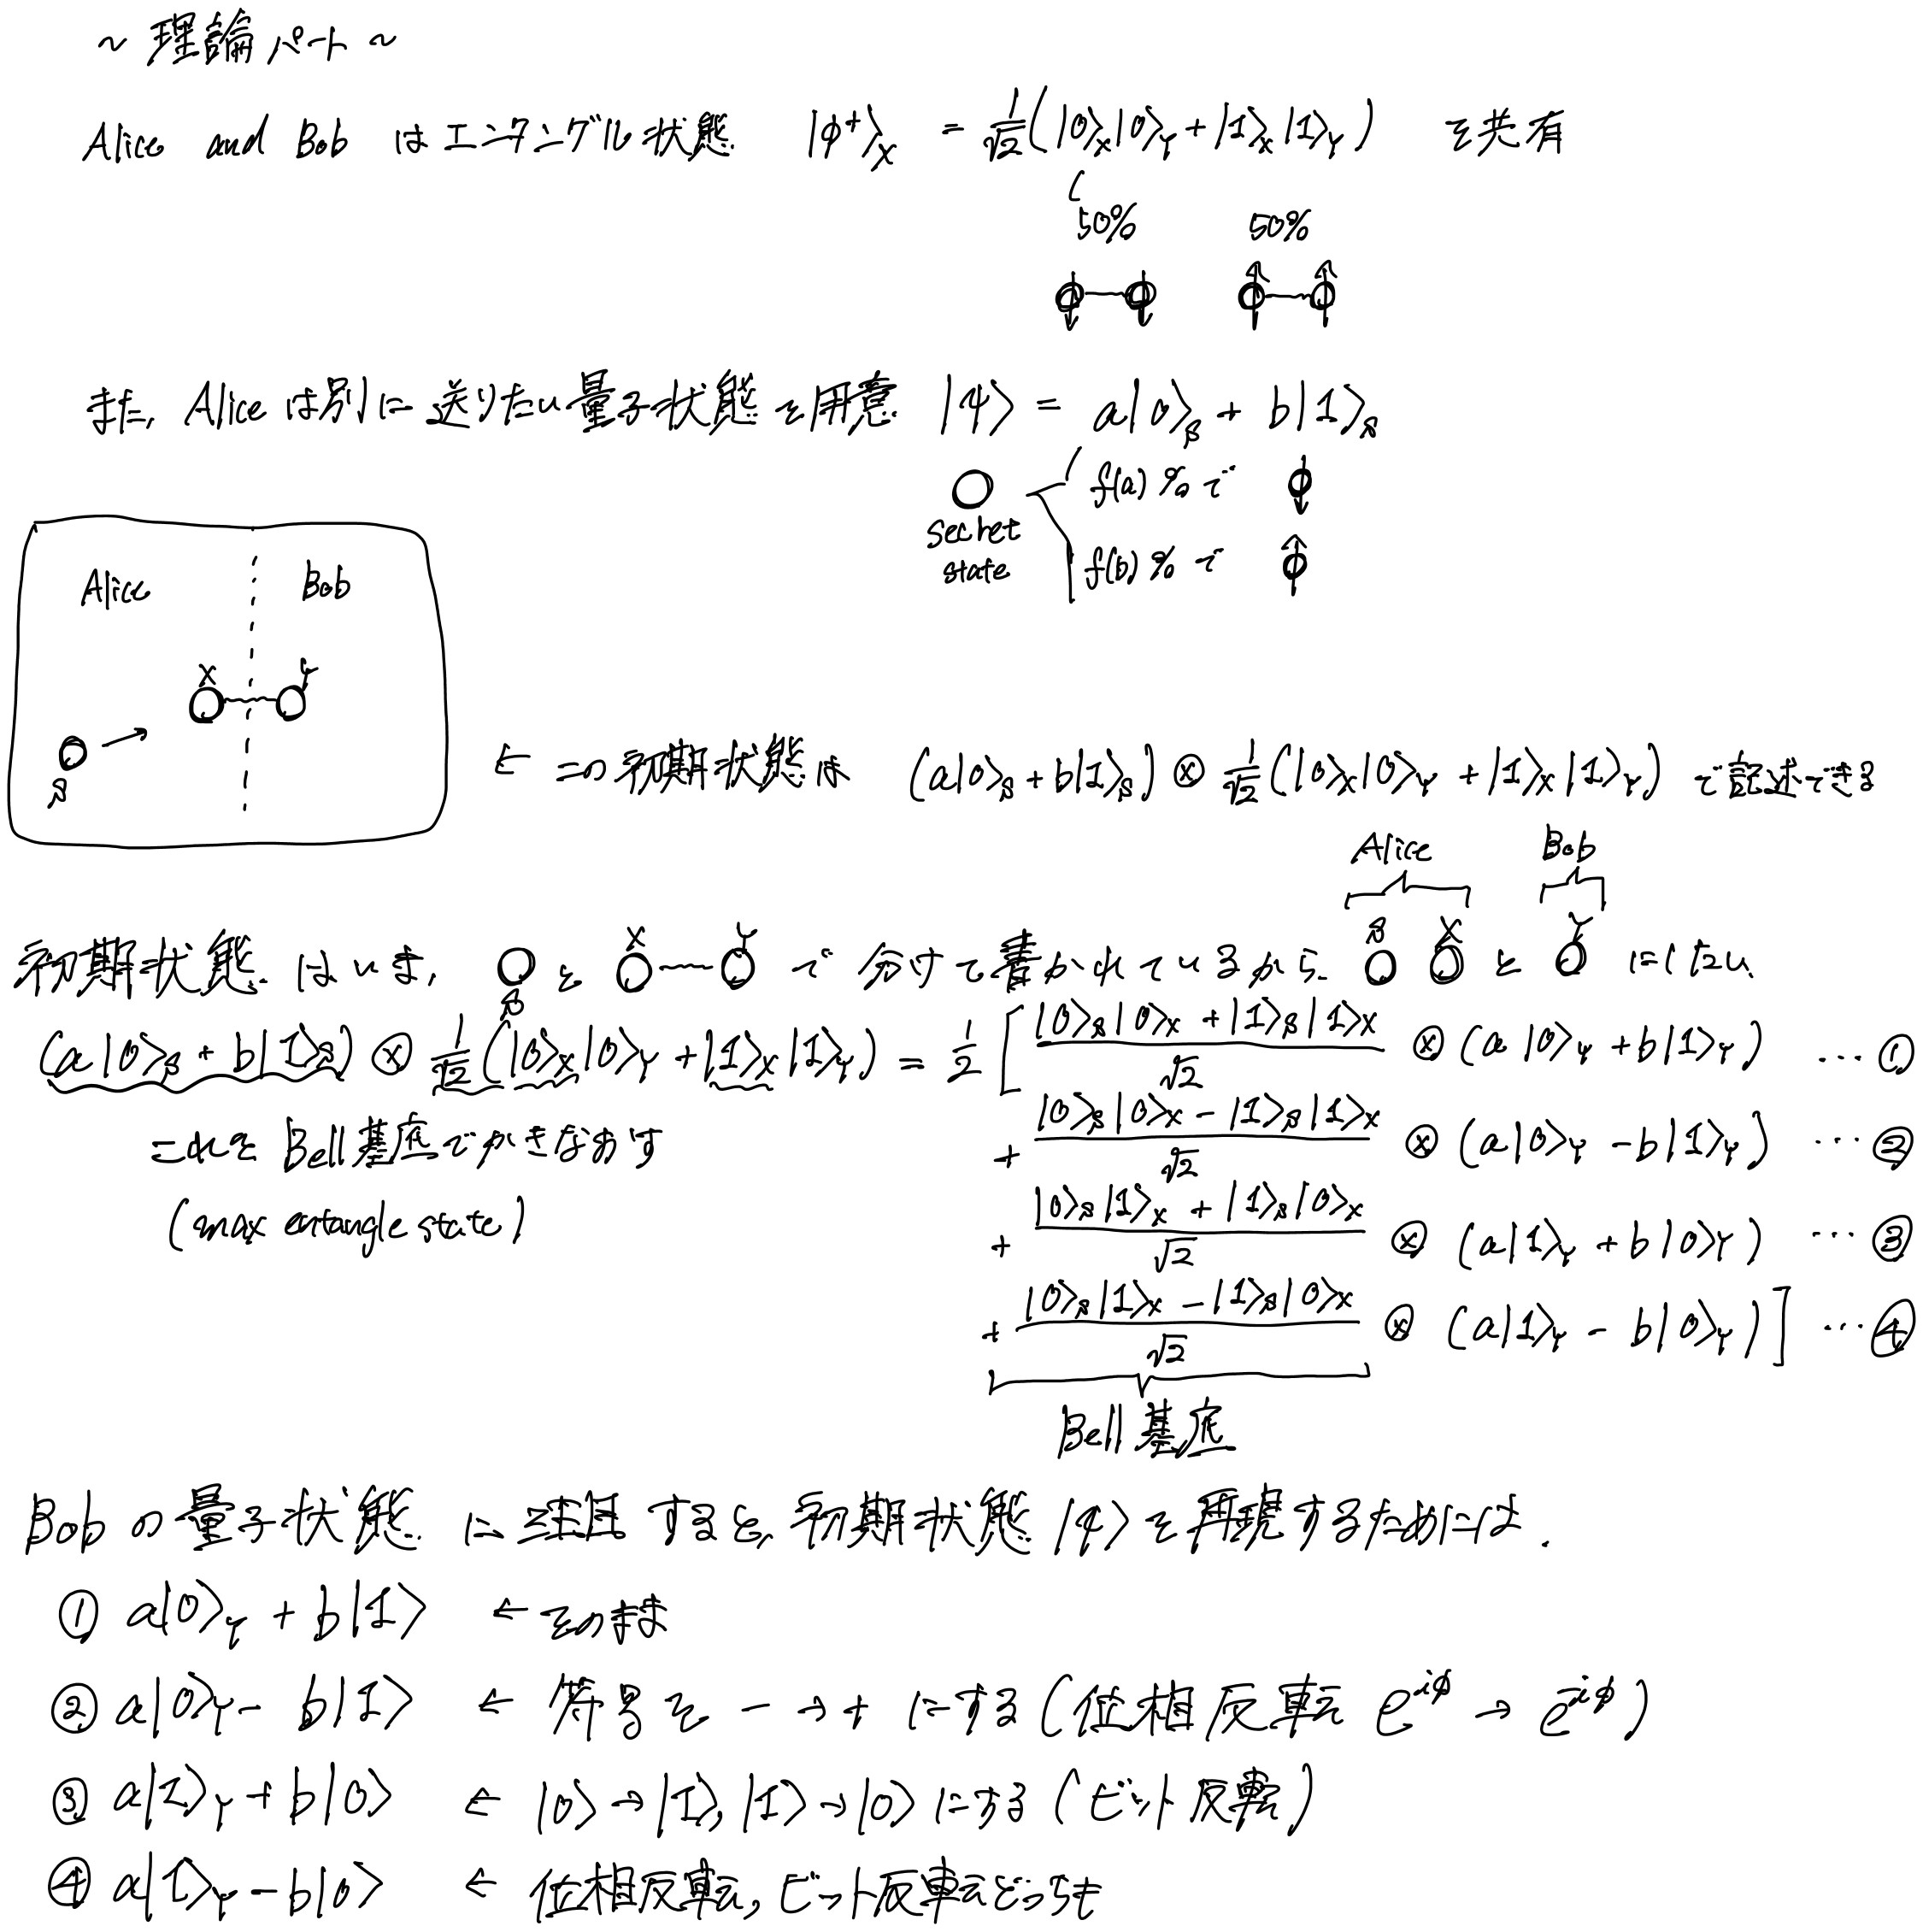 ~ 理論パート ~
Alice and Bob はエンタングル状態 |φ⁺⟩_X = 1/√2 (|0⟩_X|0⟩_Y + |1⟩_X|1⟩_Y) を共有
50% 50%
また, Alice は別に送りたい量子状態を用意 |ψ⟩ = a|0⟩_S + b|1⟩_S
secret state
f(a) % で
f(b) % で
Alice Bob
X Y
S
← この初期状態は (a|0⟩_S + b|1⟩_S) ⊗ 1/√2 (|0⟩_X|0⟩_Y + |1⟩_X|1⟩_Y) で記述できる
Alice Bob
初期状態はいま, S と X Y で分けて書かれているから. S X と Y にしたい
(a|0⟩_S + b|1⟩_S) ⊗ 1/√2 (|0⟩_X|0⟩_Y + |1⟩_X|1⟩_Y) = 1/2 [ (|0⟩_S|0⟩_X + |1⟩_S|1⟩_X)/√2 ⊗ (a|0⟩_Y + b|1⟩_Y) … ①
+ (|0⟩_S|0⟩_X − |1⟩_S|1⟩_X)/√2 ⊗ (a|0⟩_Y − b|1⟩_Y) … ②
これを Bell 基底でかきなおす
(max entangle state)
+ (|0⟩_S|1⟩_X + |1⟩_S|0⟩_X)/√2 ⊗ (a|1⟩_Y + b|0⟩_Y) … ③
+ (|0⟩_S|1⟩_X − |1⟩_S|0⟩_X)/√2 ⊗ (a|1⟩_Y − b|0⟩_Y) ] … ④
Bell 基底
Bob の量子状態に注目すると, 初期状態 |ψ⟩ を再現するためには.
① a|0⟩_Y + b|1⟩ ← そのまま
② a|0⟩_Y − b|1⟩ ← 符号を − → + にする (位相反転 e^{iφ} → e^{-iφ})
③ a|1⟩_Y + b|0⟩ ← |0⟩ → |1⟩, |1⟩ → |0⟩ にする (ビット反転)
④ a|1⟩_Y − b|0⟩ ← 位相反転, ビット反転どっちも